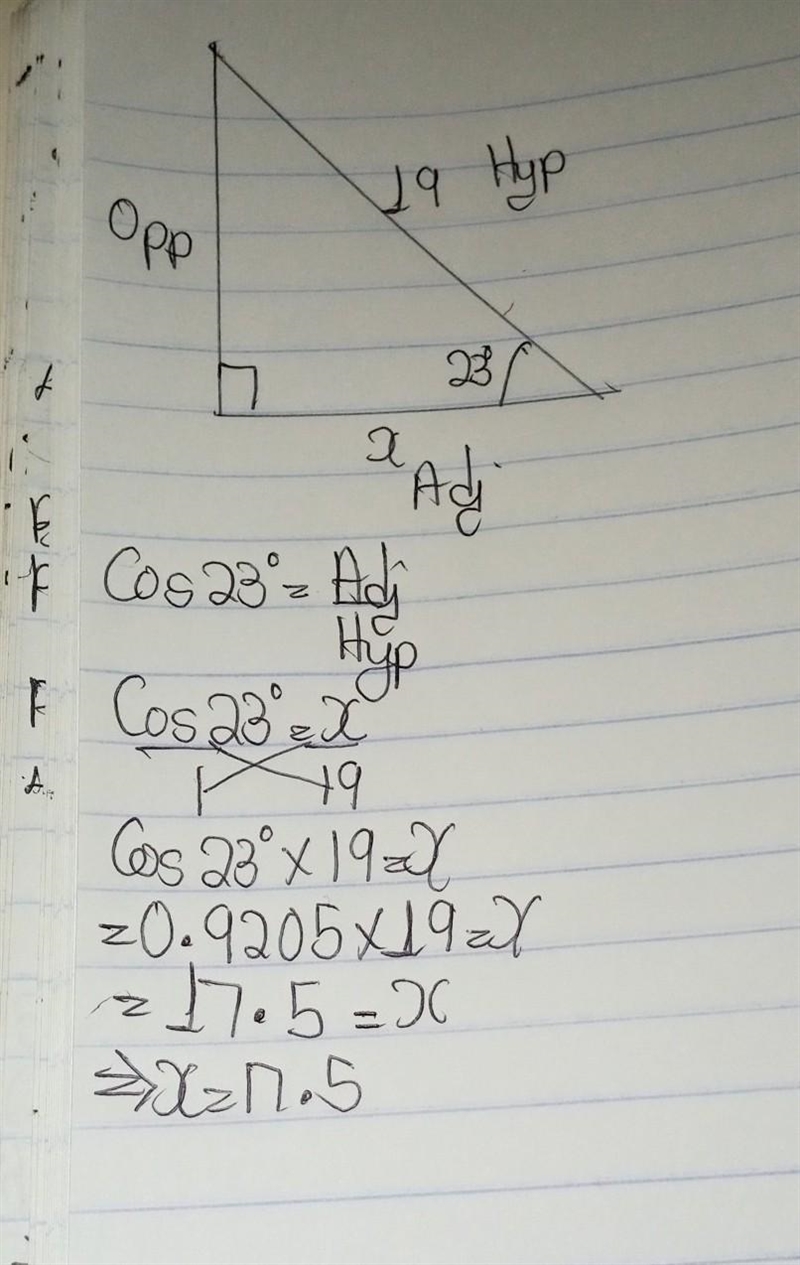 19 Hyp
Opp
23°
x
Adj
Cos 23° = Adj
Hyp
Cos 23° = x
1 19
Cos 23° × 19 = x
= 0.9205 × 19 = x
= 17.5 = x
⇒ x = 17.5